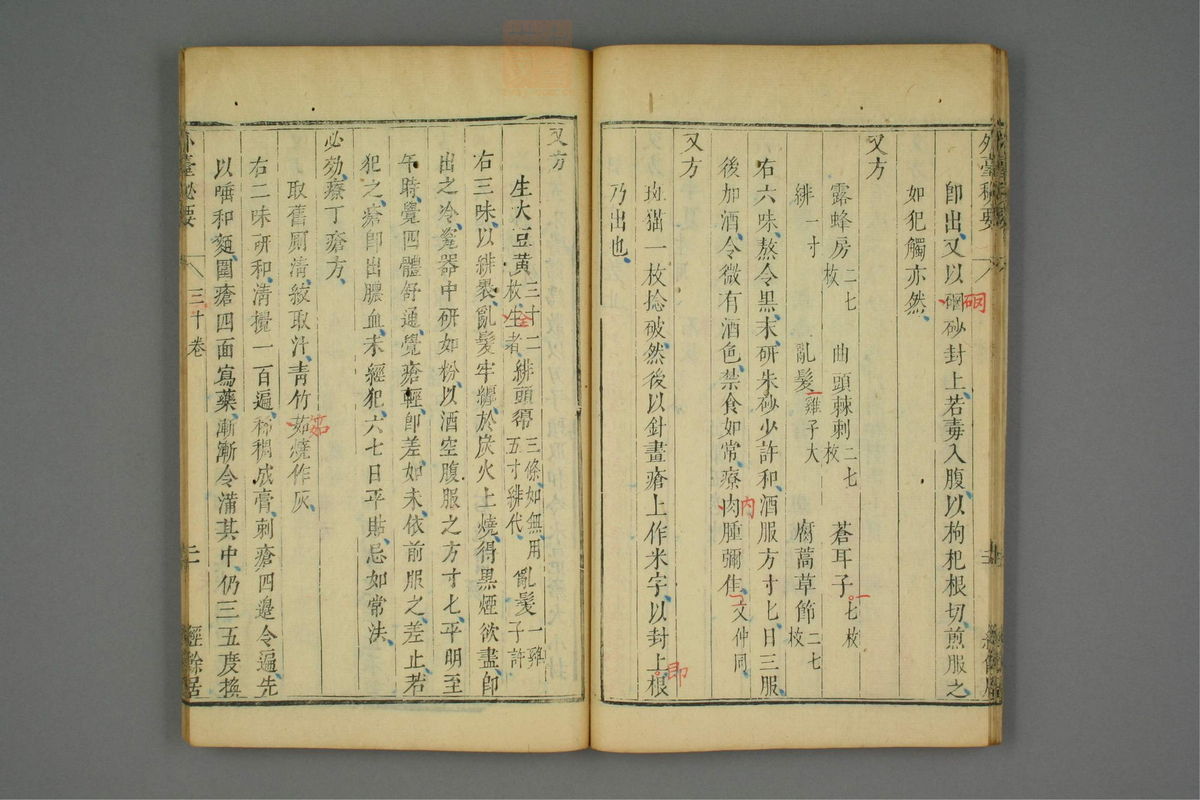 外臺秘要
即出又以硇砂封上若毒入腹以枸杞根切煎服之
硇
如犯觸亦然
又方
露蜂房二七枚 曲頭棘刺二七枚 蒼耳子七枚
一
緋一寸 亂髮雞子大 腐蒿草節二七枚
右六味熬令黑末研朱砂少許和酒服方寸匕日三服
後加酒令微有酒色禁食如常療肉腫彌佳文仲同
內
又方
斑猫一枚捻破然後以針畫瘡上作米字以封上根
即
乃出也
又方
生大豆黃三十二枚生者 緋頭帶三條如無用五寸緋代 亂髮一雞子許
全
右三味以緋裹亂髮牢纏於炭火上燒得黑煙欲盡即
出之冷瓷器中研如粉以酒空腹服之方寸匕平明至
午時覺四體舒通覺瘡輕即差如未依前服之差止若
犯之瘡即出膿血未經犯六七日平貼忌如常法
必効療丁瘡方
取舊厠清絞取汁青竹茹燒作灰
茹
右二味研和清攪一百遍稀稠成膏刺瘡四邊令遍先
以唾和麵圍瘡四面寫藥漸漸令滿其中仍三五度換
外臺秘要 三十卷 二 經餘居